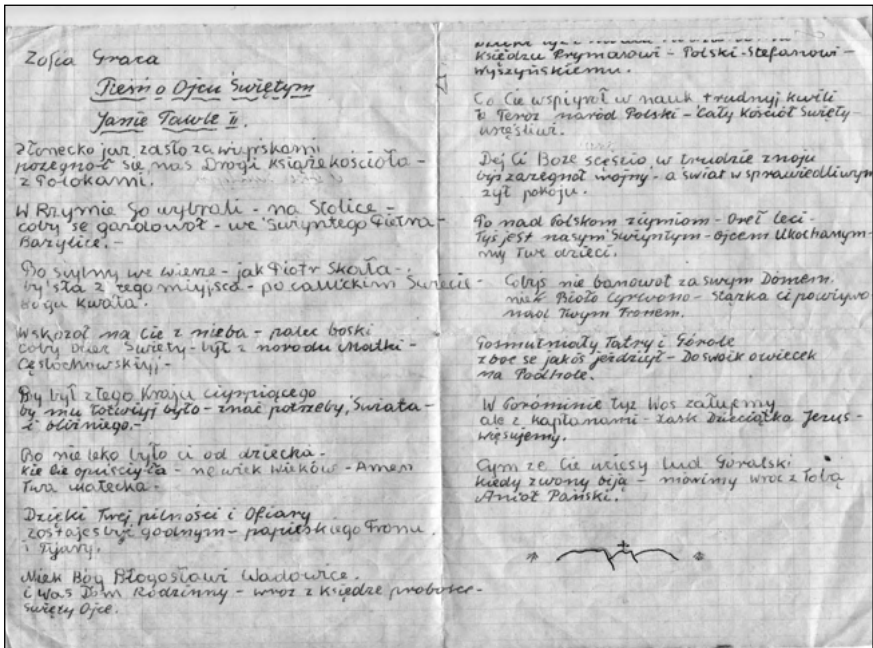 Zofia Graca
Pieśń o Ojcu Świętym
Janie Pawle II.
Słonecko już zasło za wiyrskami
pozegnoł się nas Drogi Książe kościoła -
z Polokami.
W Rzymie Go wybrali - na Stolice -
coby se gazdowoł - we Swiyntego Piotra -
Bazylice. -
Bo sylny we wierze - jak Piotr Skała -
by sła z tego miyjsca - po całickim Świecie -
Bogu kwała.
Wskozoł na Cie z nieba - palec boski
coby Ociec Święty - był z narodu Matki -
Cęstochowskiyj -
By był z tego Kraju ciyrpiącego
by mu łotwiyj było - znać potrzeby, Świata -
i bliźniego. -
Bo nie leko było ci od dziecka -
Kie Cie opuściyła - na wiek wieków - Amen
Twa matecka -
Dzięki Twej pilności i Ofiary
zostajes być godnym - papieskiego Tronu
i Tyjary.
Niek Bóg Błogosławi Wadowice.
i Was Dom Rodzinny - wroz z księdze probosce -
Święty Ojce.
Księdzu Prymasowi - Polski - Stefanowi -
Wyszyńskiemu.
Co Cie wspiyroł w nauk trudnyj kwili
Teroz naród Polski - Cały Kościół Święty -
uscęśliwi.
Dej Ci Boze scęscio, w trudzie znoju
byś zazegnoł wojny - a świat w sprawiedliwym
zył pokoju.
Po nad Polskom ziymiom - Oreł leci -
Tyś jest nasym Świyntym - Ojcem Ukochanym -
my Twe dzieci.
Cobyś nie banowoł za swym Domem.
niek Bioło Cyrwono - stązka ci powiywo
nad Twym Tronem.
Posmutniały Tatry i Górole
zboc se jakoś jeździył - Do swoik owiecek
na Podhole.
W Poroninie tyz Wos załujemy
ale z kapłanami - Łask Dzieciątka Jezus -
więsujemy.
Cym ze Cie uciesy lud Góralski
kiedy zwony biją - mówimy wroz z Tobą
Anioł Pański.